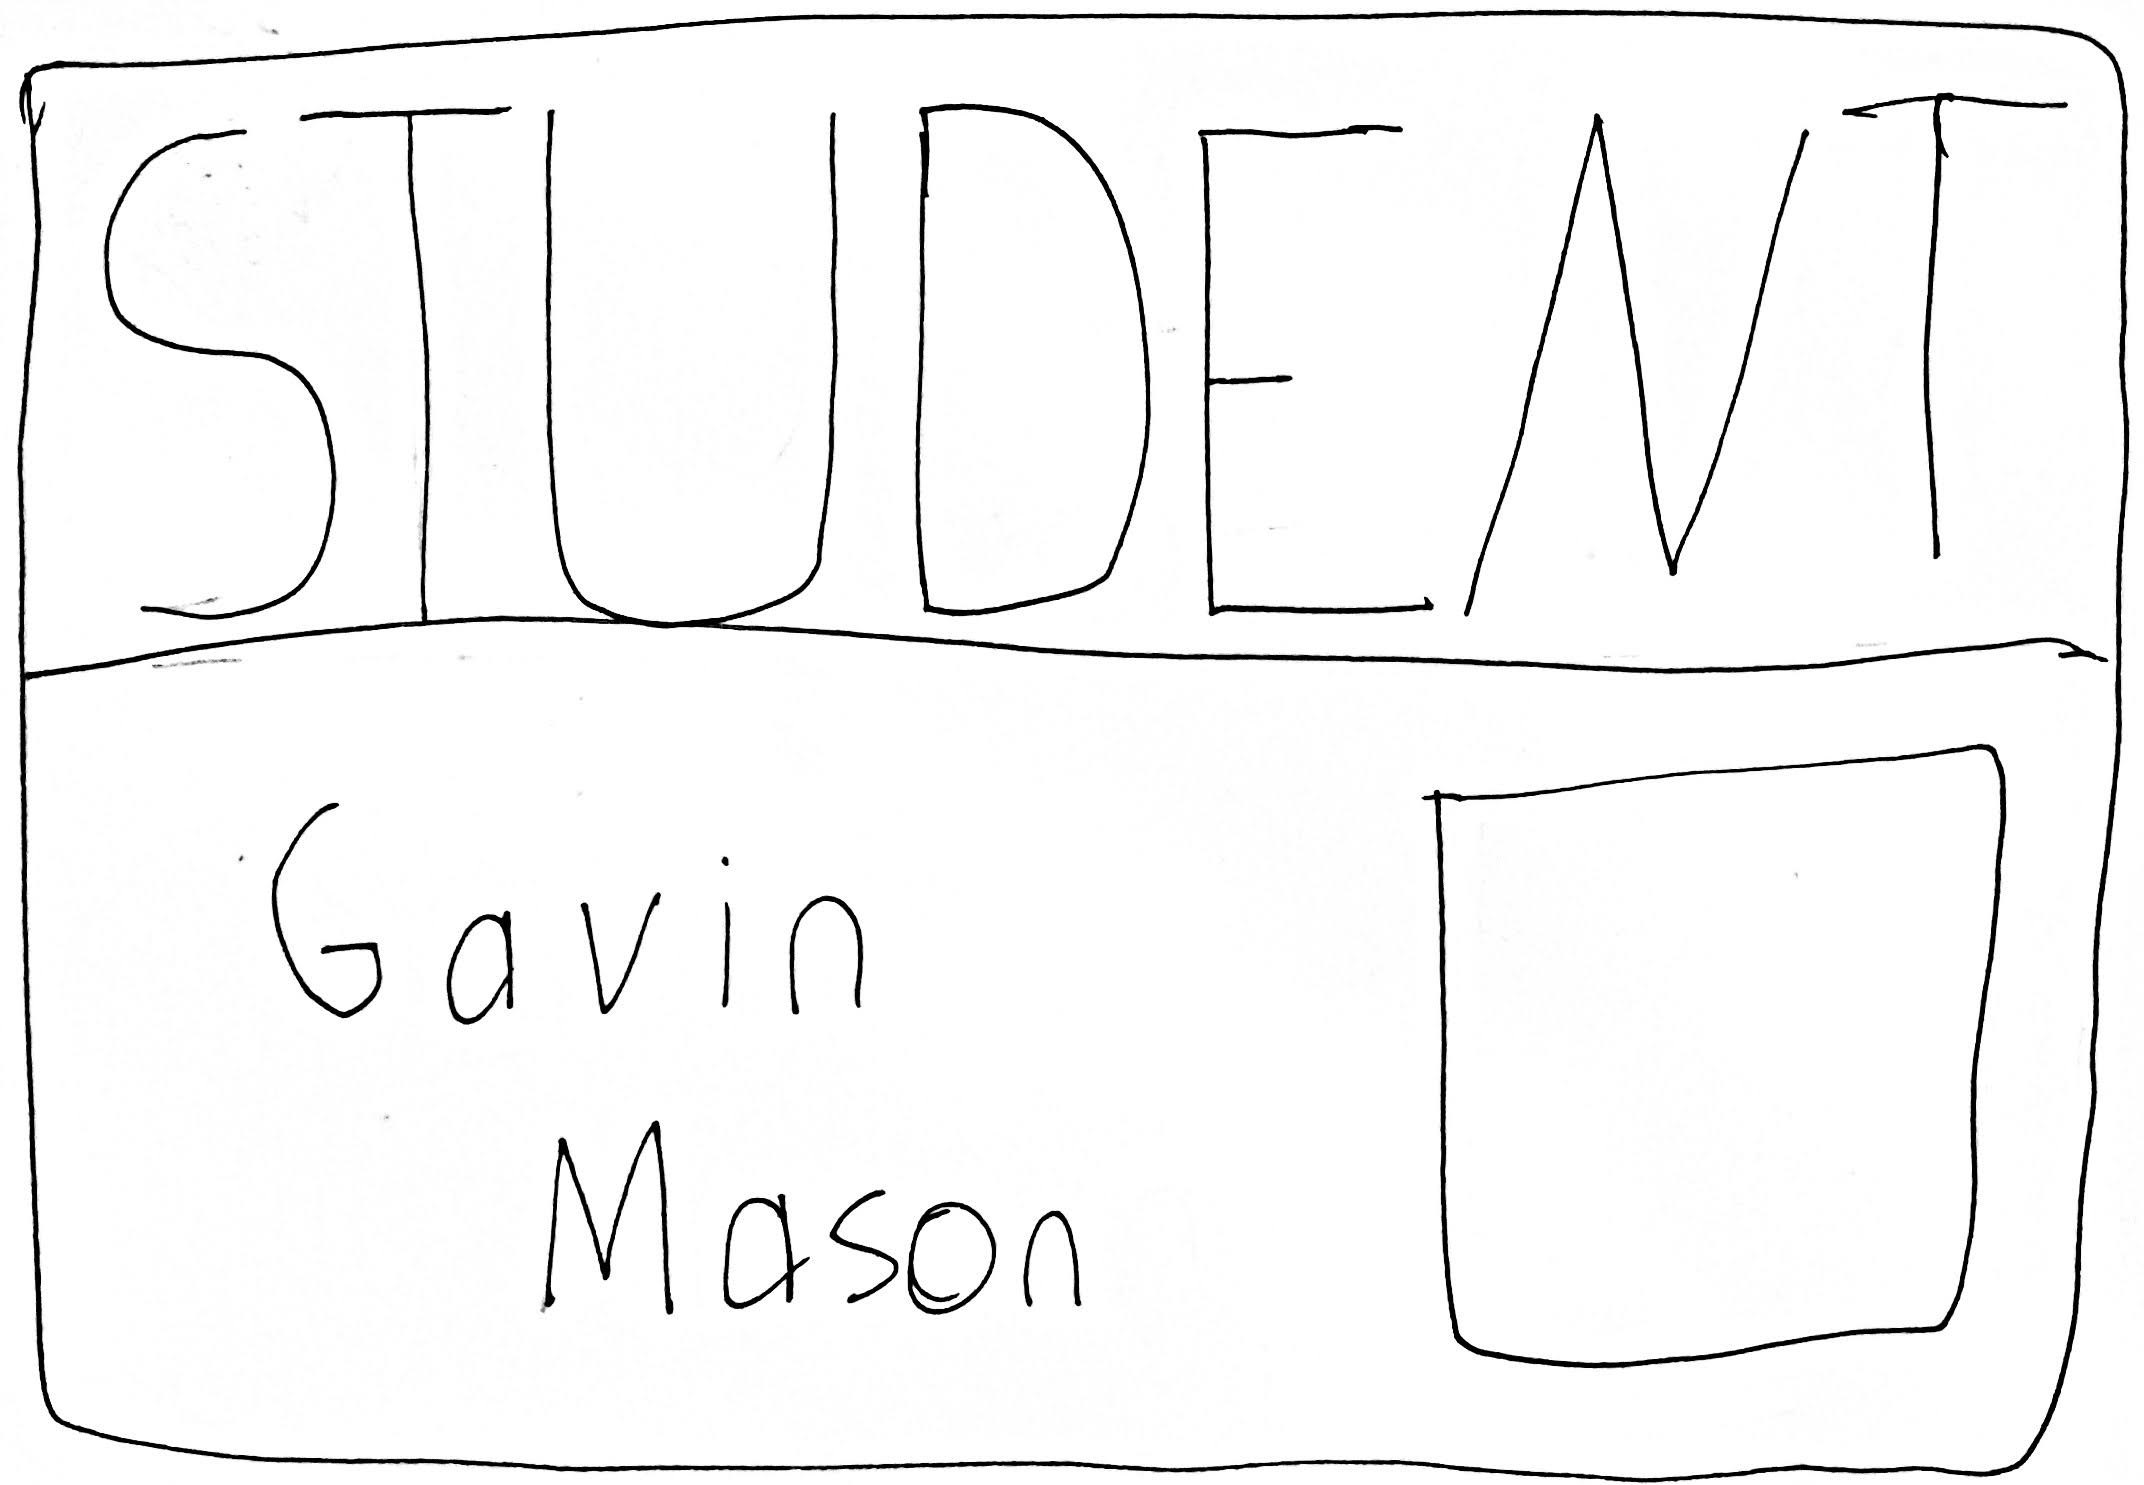 STUDENT
Gavin
Mason